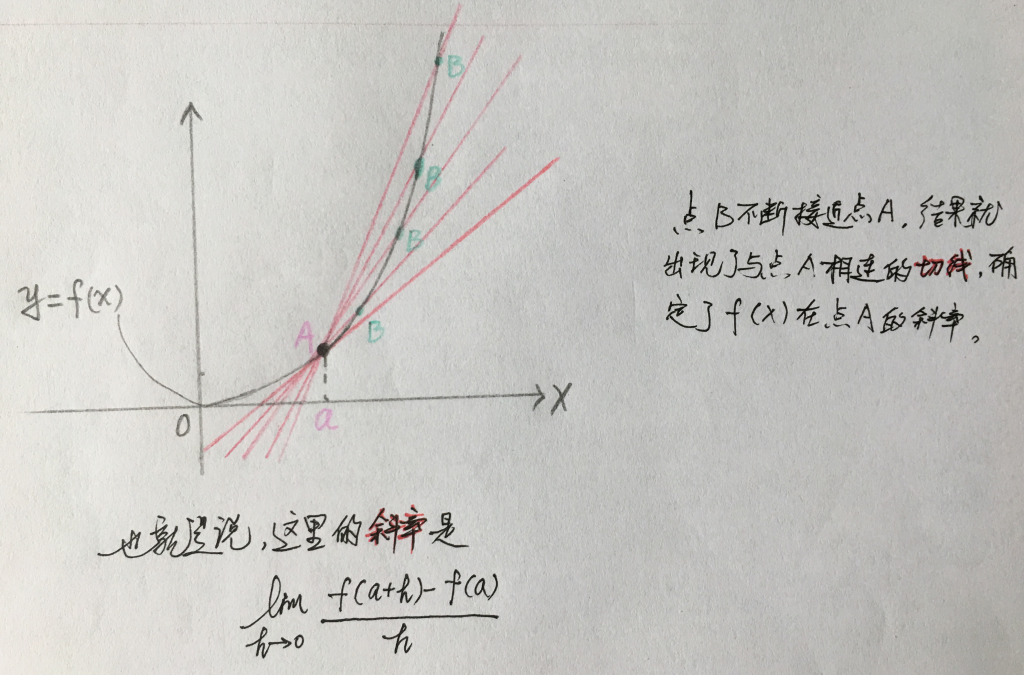 B
B
B
B
A
a
y=f(x)
0
X
点B不断接近点A,结果就
出现了与点A相连的切线,确
定了f(x)在点A的斜率。
也就是说,这里的斜率是
lim f(a+h)-f(a)
h→0 h